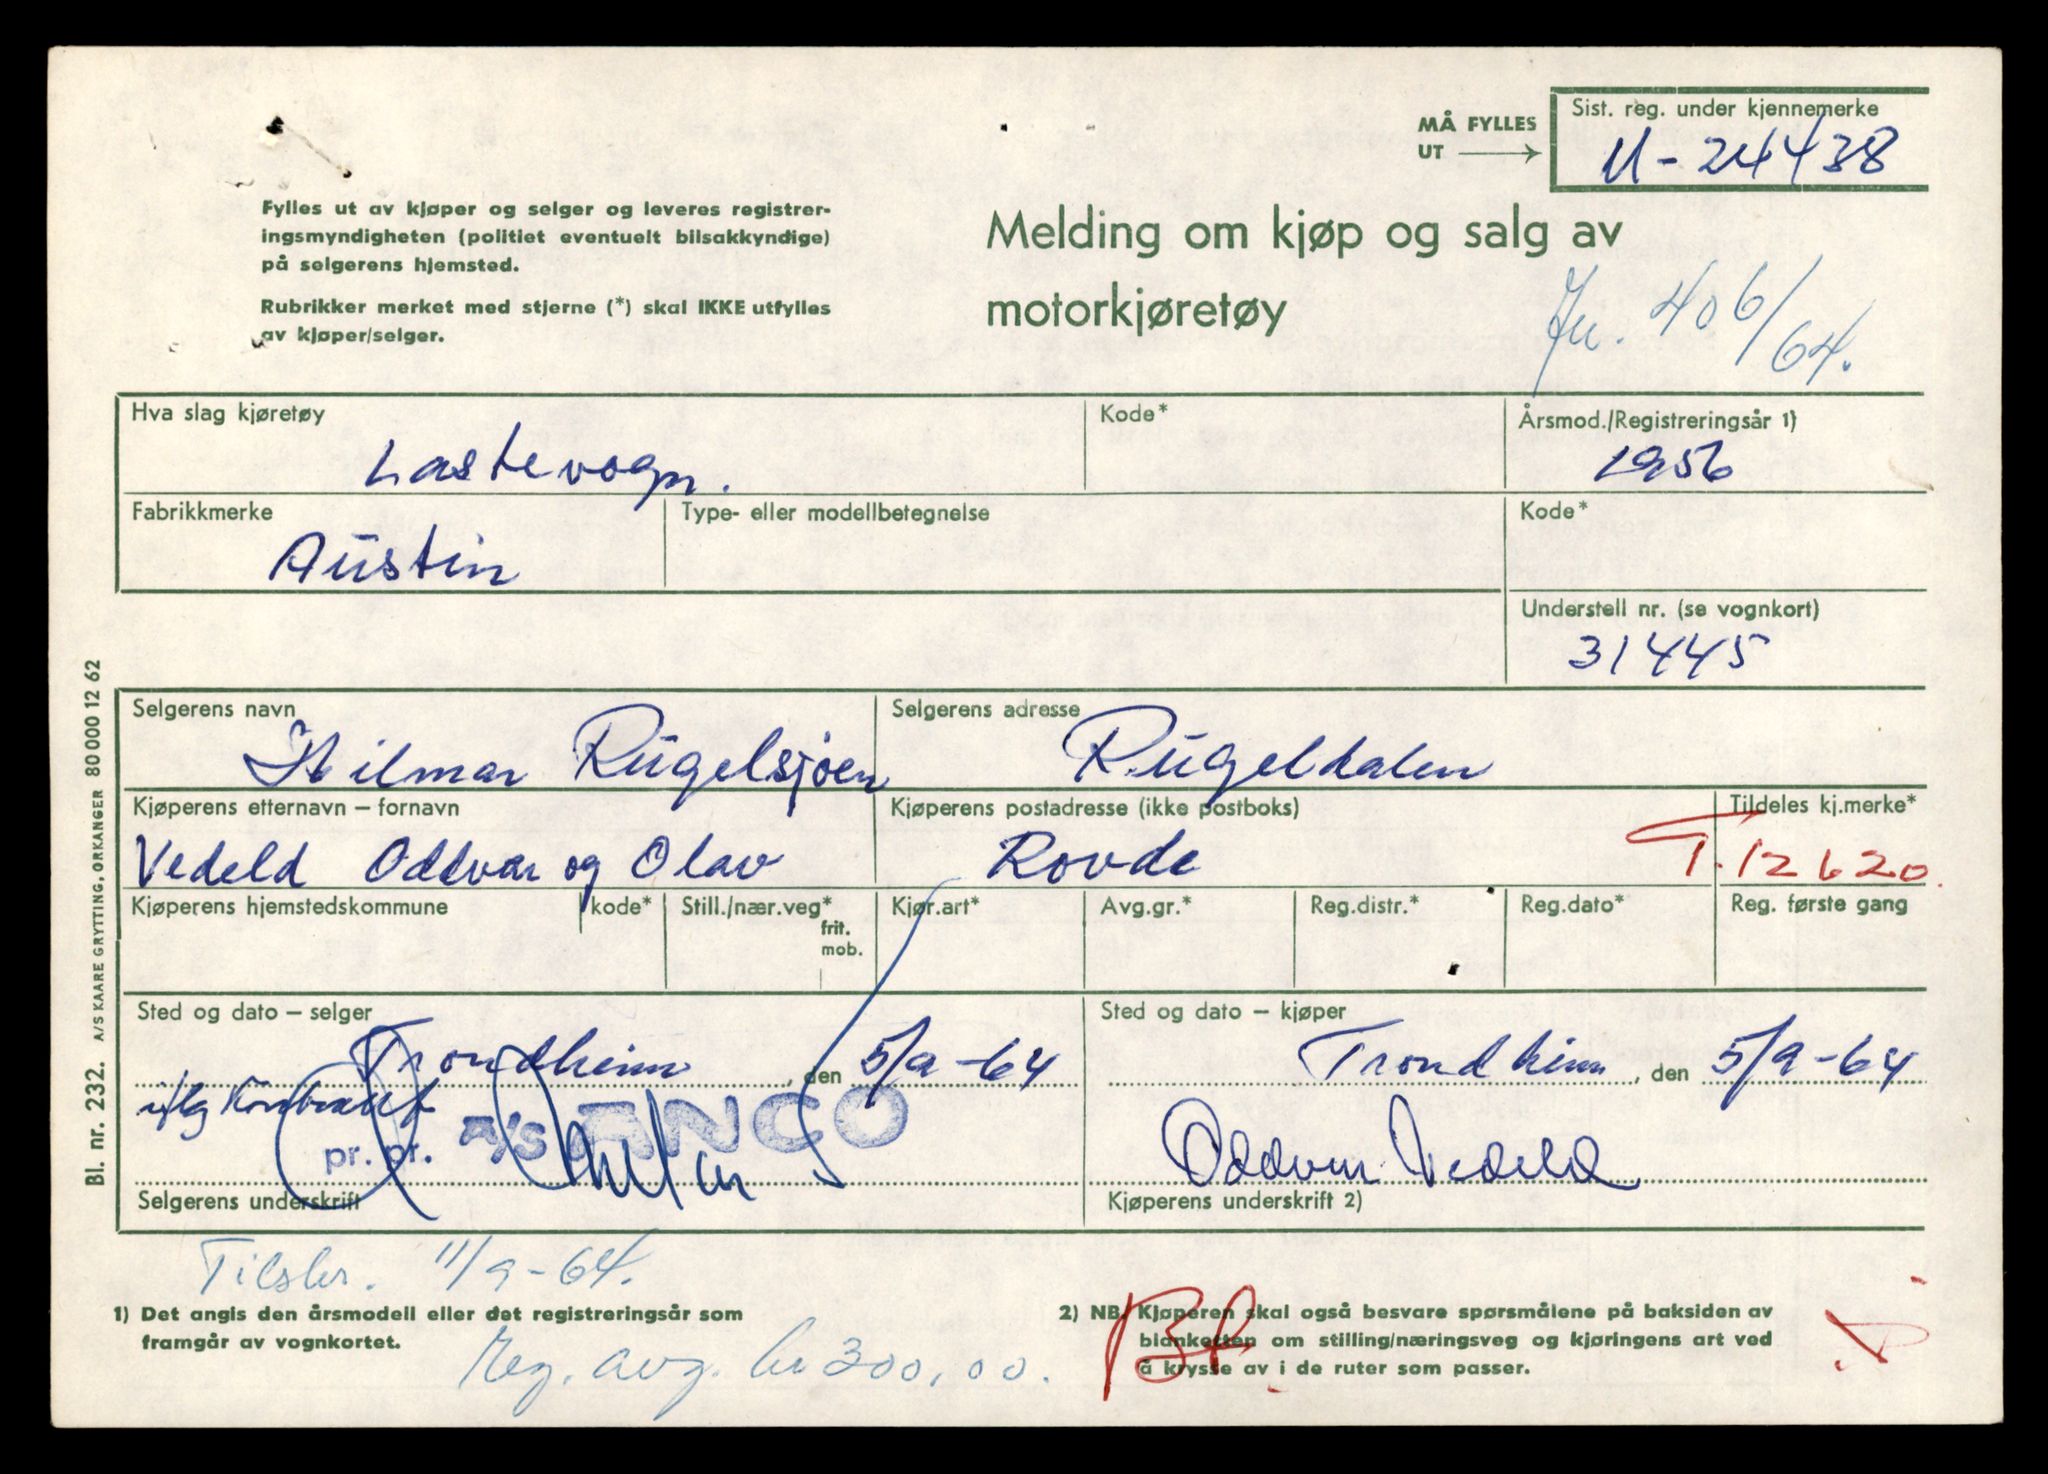 MÅ FYLLES
UT
Sist. reg. under kjennemerke
U-24438
Fylles ut av kjøper og selger og leveres registrer-
ingsmyndigheten (politiet eventuelt bilsakkyndige)
på selgerens hjemsted.
Rubrikker merket med stjerne (*) skal IKKE utfylles
av kjøper/selger.
Melding om kjøp og salg av
motorkjøretøy
Jn. 406/64.
Hva slag kjøretøy
Kode*
Årsmod./Registreringsår 1)
Lastevogn.
1956
Fabrikkmerke
Type- eller modellbetegnelse
Kode*
Austin
Understell nr. (se vognkort)
31445
Selgerens navn
Selgerens adresse
Hilmar Rugelsjøen
Rugeldalen
Kjøperens etternavn – fornavn
Kjøperens postadresse (ikke postboks)
Tildeles kj.merke*
Vedeld Oddvar og Olav
Rovde
T.12620.
Kjøperens hjemstedskommune
kode*
Still./nær.veg*
frit.
mob.
Kjør.art*
Avg.gr.*
Reg.distr.*
Reg.dato*
Reg. første gang
Sted og dato – selger
Sted og dato – kjøper
Trondheim, den 5/9-64
Trondheim, den 5/9-64
iflg Kontrakt
pr. pr. A/S ANCO
Oddvar Vedeld
Selgerens underskrift
Kjøperens underskrift 2)
Tilskr. 11/9-64.
1) Det angis den årsmodell eller det registreringsår som
framgår av vognkortet.
2) NB. Kjøperen skal også besvare spørsmålene på baksiden av
blanketten om stilling/næringsveg og kjøringens art ved
å krysse av i de ruter som passer.
Reg. avg. kr 300,00.
Bl. nr. 232. A/S KAARE GRYTTING, ORKANGER 80 000 12 62